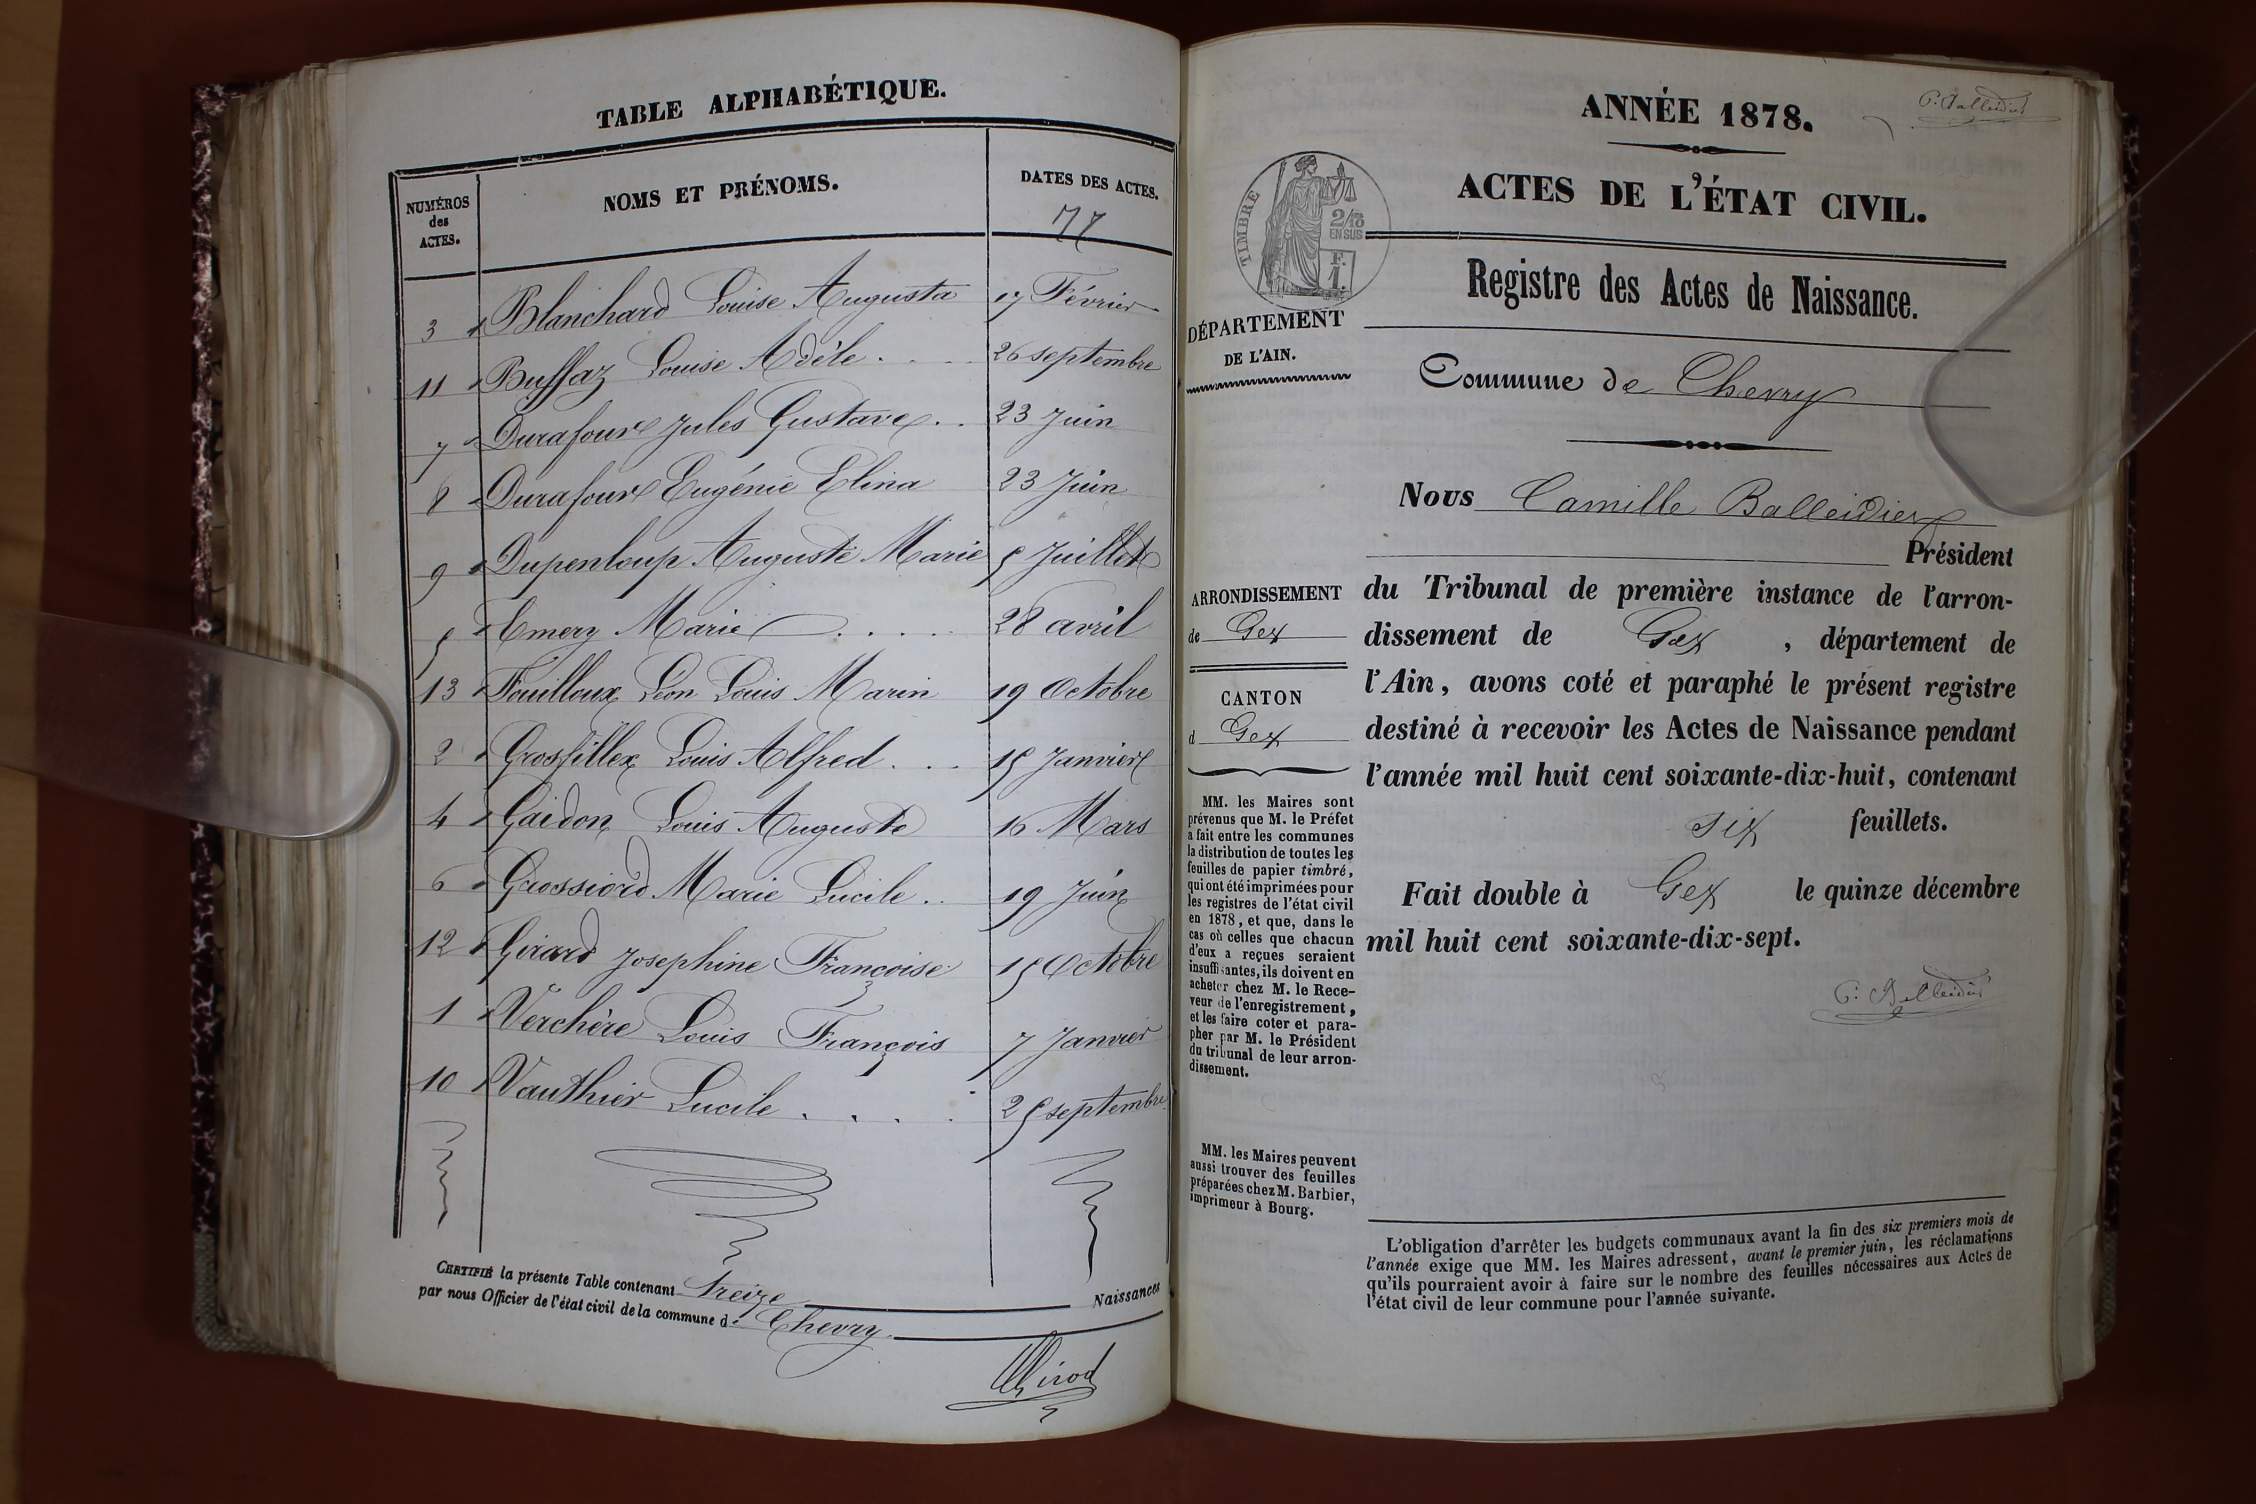 TABLE ALPHABÉTIQUE.
NUMÉROS
des
ACTES.
NOMS ET PRÉNOMS.
DATES DES ACTES.
77
3 Blanchard Louise Augusta 17 Février
11 Buffaz Louise Adèle 26 septembre
7 Durafour Jules Gustave 23 Juin
8 Durafour Eugénie Elina 23 Juin
9 Dupenloup Auguste Marie 5 Juillet
5 Emery Marie 28 avril
13 Fouilloux Léon Louis Marin 19 Octobre
2 Grosfillex Louis Alfred 15 Janvier
4 Gaidon Louis Auguste 16 Mars
6 Grossiord Marie Lucile 19 Juin
12 Girard Josephine Françoise 15 Octobre
1 Verchère Louis François 7 Janvier
10 Vauthier Lucile 25 septembre
CERTIFIÉ la présente Table contenant Treize Naissances
par nous Officier de l'état civil de la commune de Chevry
Girod
ANNÉE 1878.
C. Balleidier
ACTES DE L'ÉTAT CIVIL.
TIMBRE
2/10
EN SUS
F.
1.
Registre des Actes de Naissance.
DÉPARTEMENT
DE L'AIN.
Commune de Chevry
Nous Camille Balleidier
Président
du Tribunal de première instance de l'arron-
dissement de Gex, département de
l'Ain, avons coté et paraphé le présent registre
destiné à recevoir les Actes de Naissance pendant
l'année mil huit cent soixante-dix-huit, contenant
six feuillets.
Fait double à Gex le quinze décembre
mil huit cent soixante-dix-sept.
C. Balleidier
ARRONDISSEMENT
de Gex
CANTON
d Gex
MM. les Maires sont
prévenus que M. le Préfet
a fait entre les communes
la distribution de toutes les
feuilles de papier timbré,
qui ont été imprimées pour
les registres de l'état civil
en 1878, et que, dans le
cas où celles que chacun
d'eux a reçues seraient
insuffisantes, ils doivent en
acheter chez M. le Rece-
veur de l'enregistrement,
et les faire coter et para-
pher par M. le Président
du tribunal de leur arron-
dissement.
MM. les Maires peuvent
aussi trouver des feuilles
préparées chez M. Barbier,
imprimeur à Bourg.
L'obligation d'arrêter les budgets communaux avant la fin des six premiers mois de
l'année exige que MM. les Maires adressent, avant le premier juin, les réclamations
qu'ils pourraient avoir à faire sur le nombre des feuilles nécessaires aux Actes de
l'état civil de leur commune pour l'année suivante.